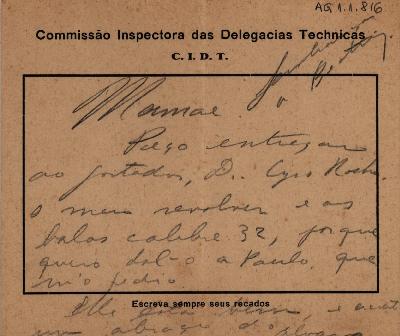 AG 1.1.816
Commissão Inspectora das Delegacias Technicas
C. I. D. T.
Mamae.
Peço entregar
ao portador, D. Cyro Rocha
o meu revolver e as
balas calibre 32, porque
quero dal-o a Paulo, que
m'o pedio
Escreva sempre seus recados
Elle está bem, e
um abraço do Alvaro